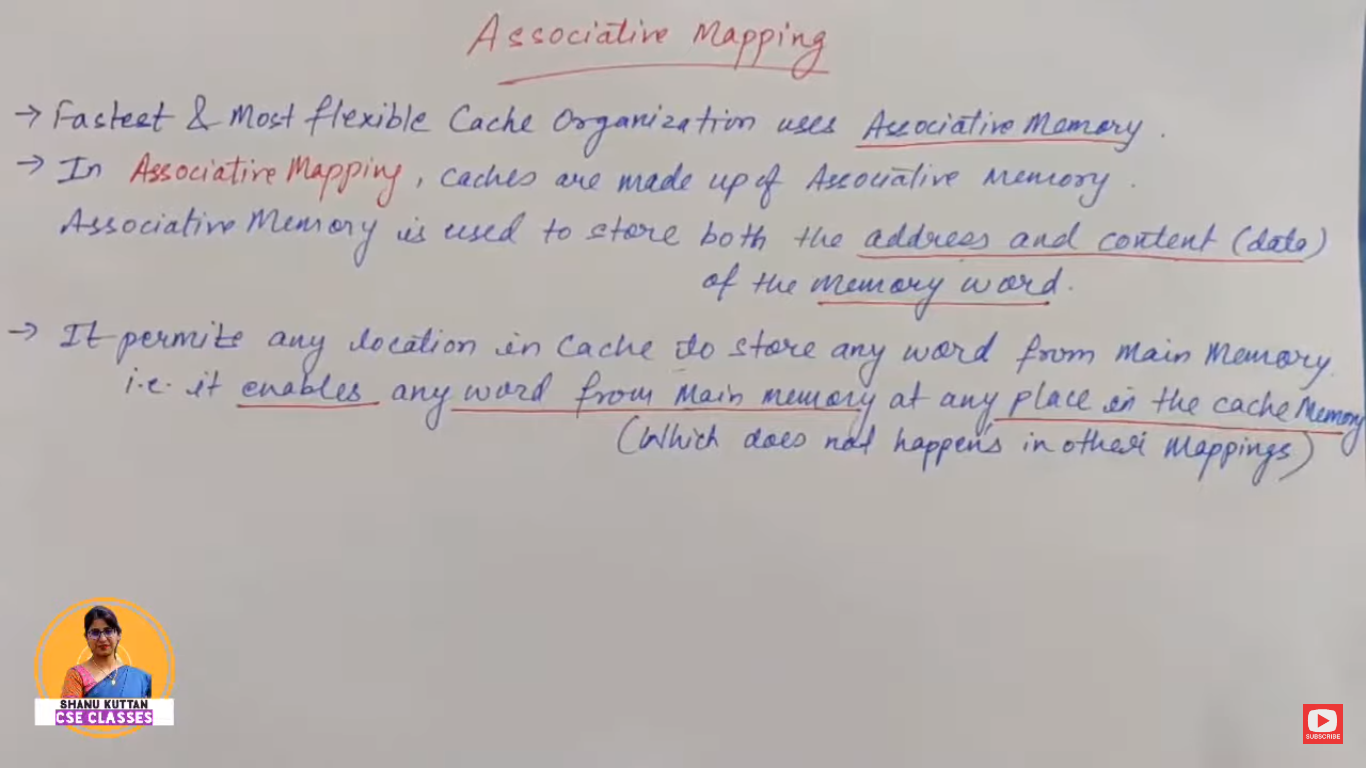 Associative Mapping
→ Fastest & Most flexible Cache Organization uses Associative Memory.
→ In Associative Mapping, caches are made up of Associative Memory.
Associative Memory is used to store both the address and content (data)
of the memory word.
→ It permits any location in Cache to store any word from Main Memory.
i.e. it enables any word from Main memory at any place in the cache Memory
(Which does not happens in other Mappings)
SHANU KUTTAN
CSE CLASSES
SUBSCRIBE